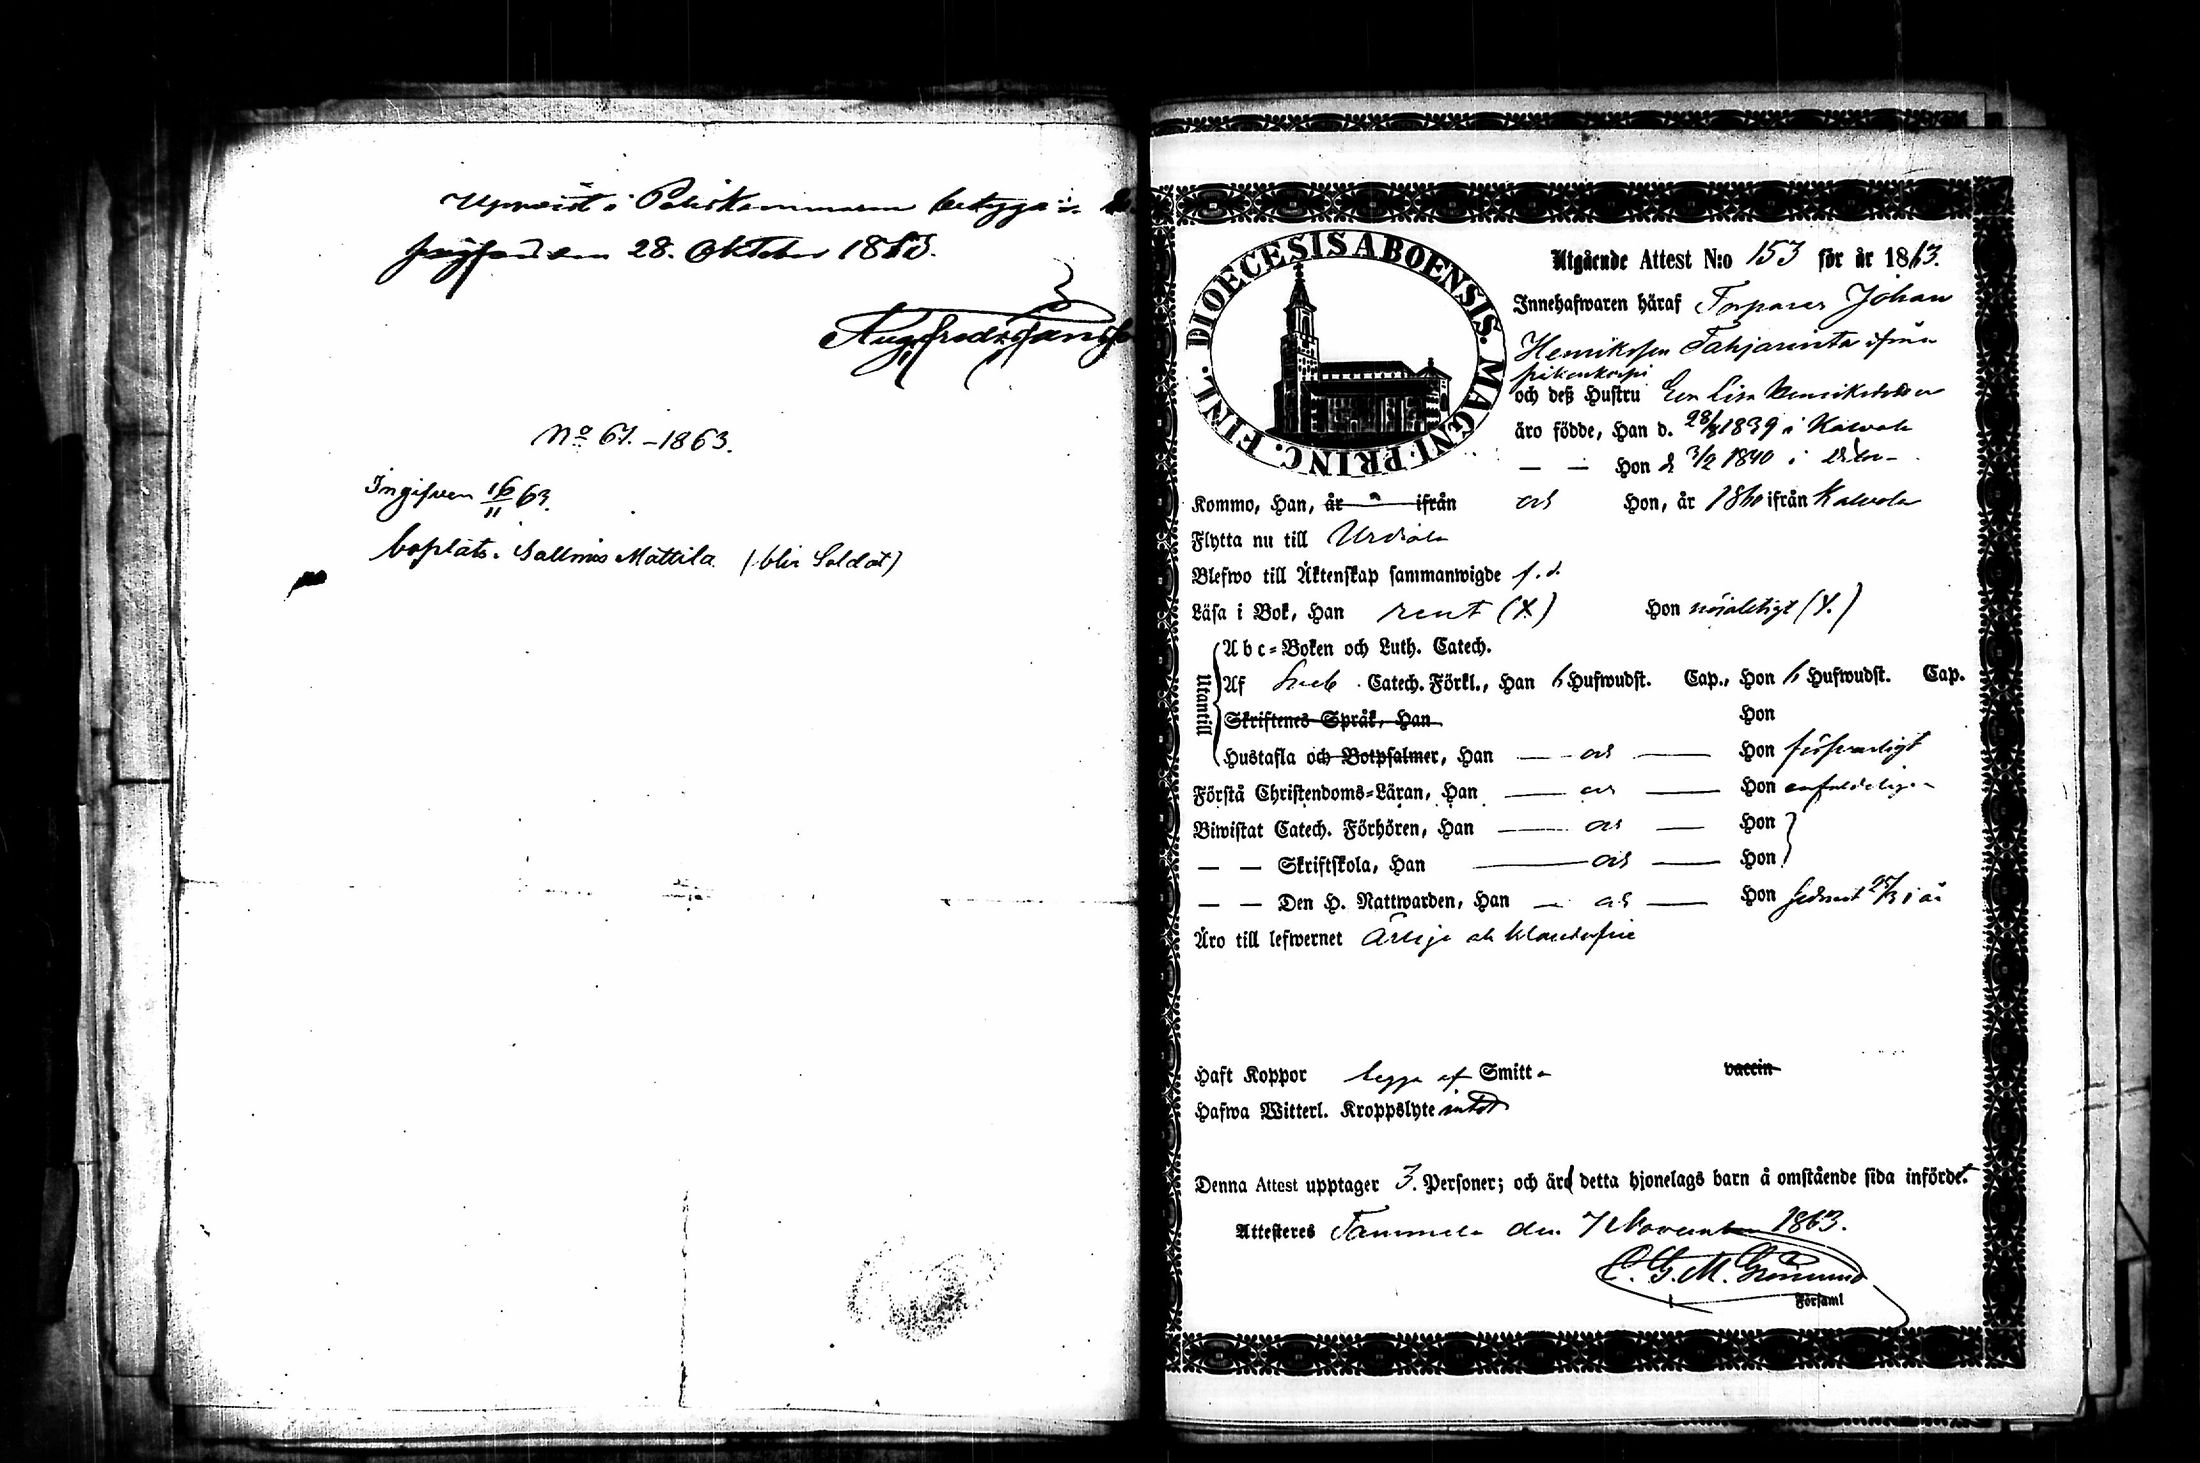 Uppvist i Poliskammaren betygar
28. Oktober 1863.
No 61. -1863.
Ingifven 16/11 63.
boplats. Sallmis Mattila (blir Soldat)
DIOECESIS ABOENSIS. MAGNI. PRINC. FINL.
Utgående Attest N:o 153 för år 1863.
Innehafwaren häraf Torparen Johan
Henriksson ifrån
och deß Hustru Eva Lisa Henriksdotter
äro födde, Han d. 1839 i Kalvola
— — Hon d 3/2 1840 i
Kommo, Han, år ifrån Hon, år 1860 ifrån Kalvola
Flytta nu till Urdiala
Blefwo till Äktenskap sammanwigde
Läsa i Bok, Han rent (X) Hon nöjaktigt (X.)
Utantill
Abc-Boken och Luth. Catech.
Af Sveb. Catech. Förkl., Han 6 Hufwudst. Cap., Hon 6 Hufwudst. Cap.
Skriftenes Språk, Han Hon
Hustafla och Botpsalmer, Han — — Hon försvarligt
Förstå Christendoms-Läran, Han — — Hon enfaldeligen
Biwistat Catech. Förhören, Han — — Hon
— — Skriftskola, Han — — Hon
— — Den H. Nattwarden, Han — — Hon sednast 25/3 i år
Äro till lefwernet Ärlige och klanderfrie
Haft Koppor begge af Smitta vaccin
Hafwa Witterl. Kroppslyte intet
Denna Attest upptager 3. Personer; och äro detta hjonelags barn å omstående sida infördt.
Attesteres Tammela den 7 November 1863.
C. G. M. Grönlund
Församl